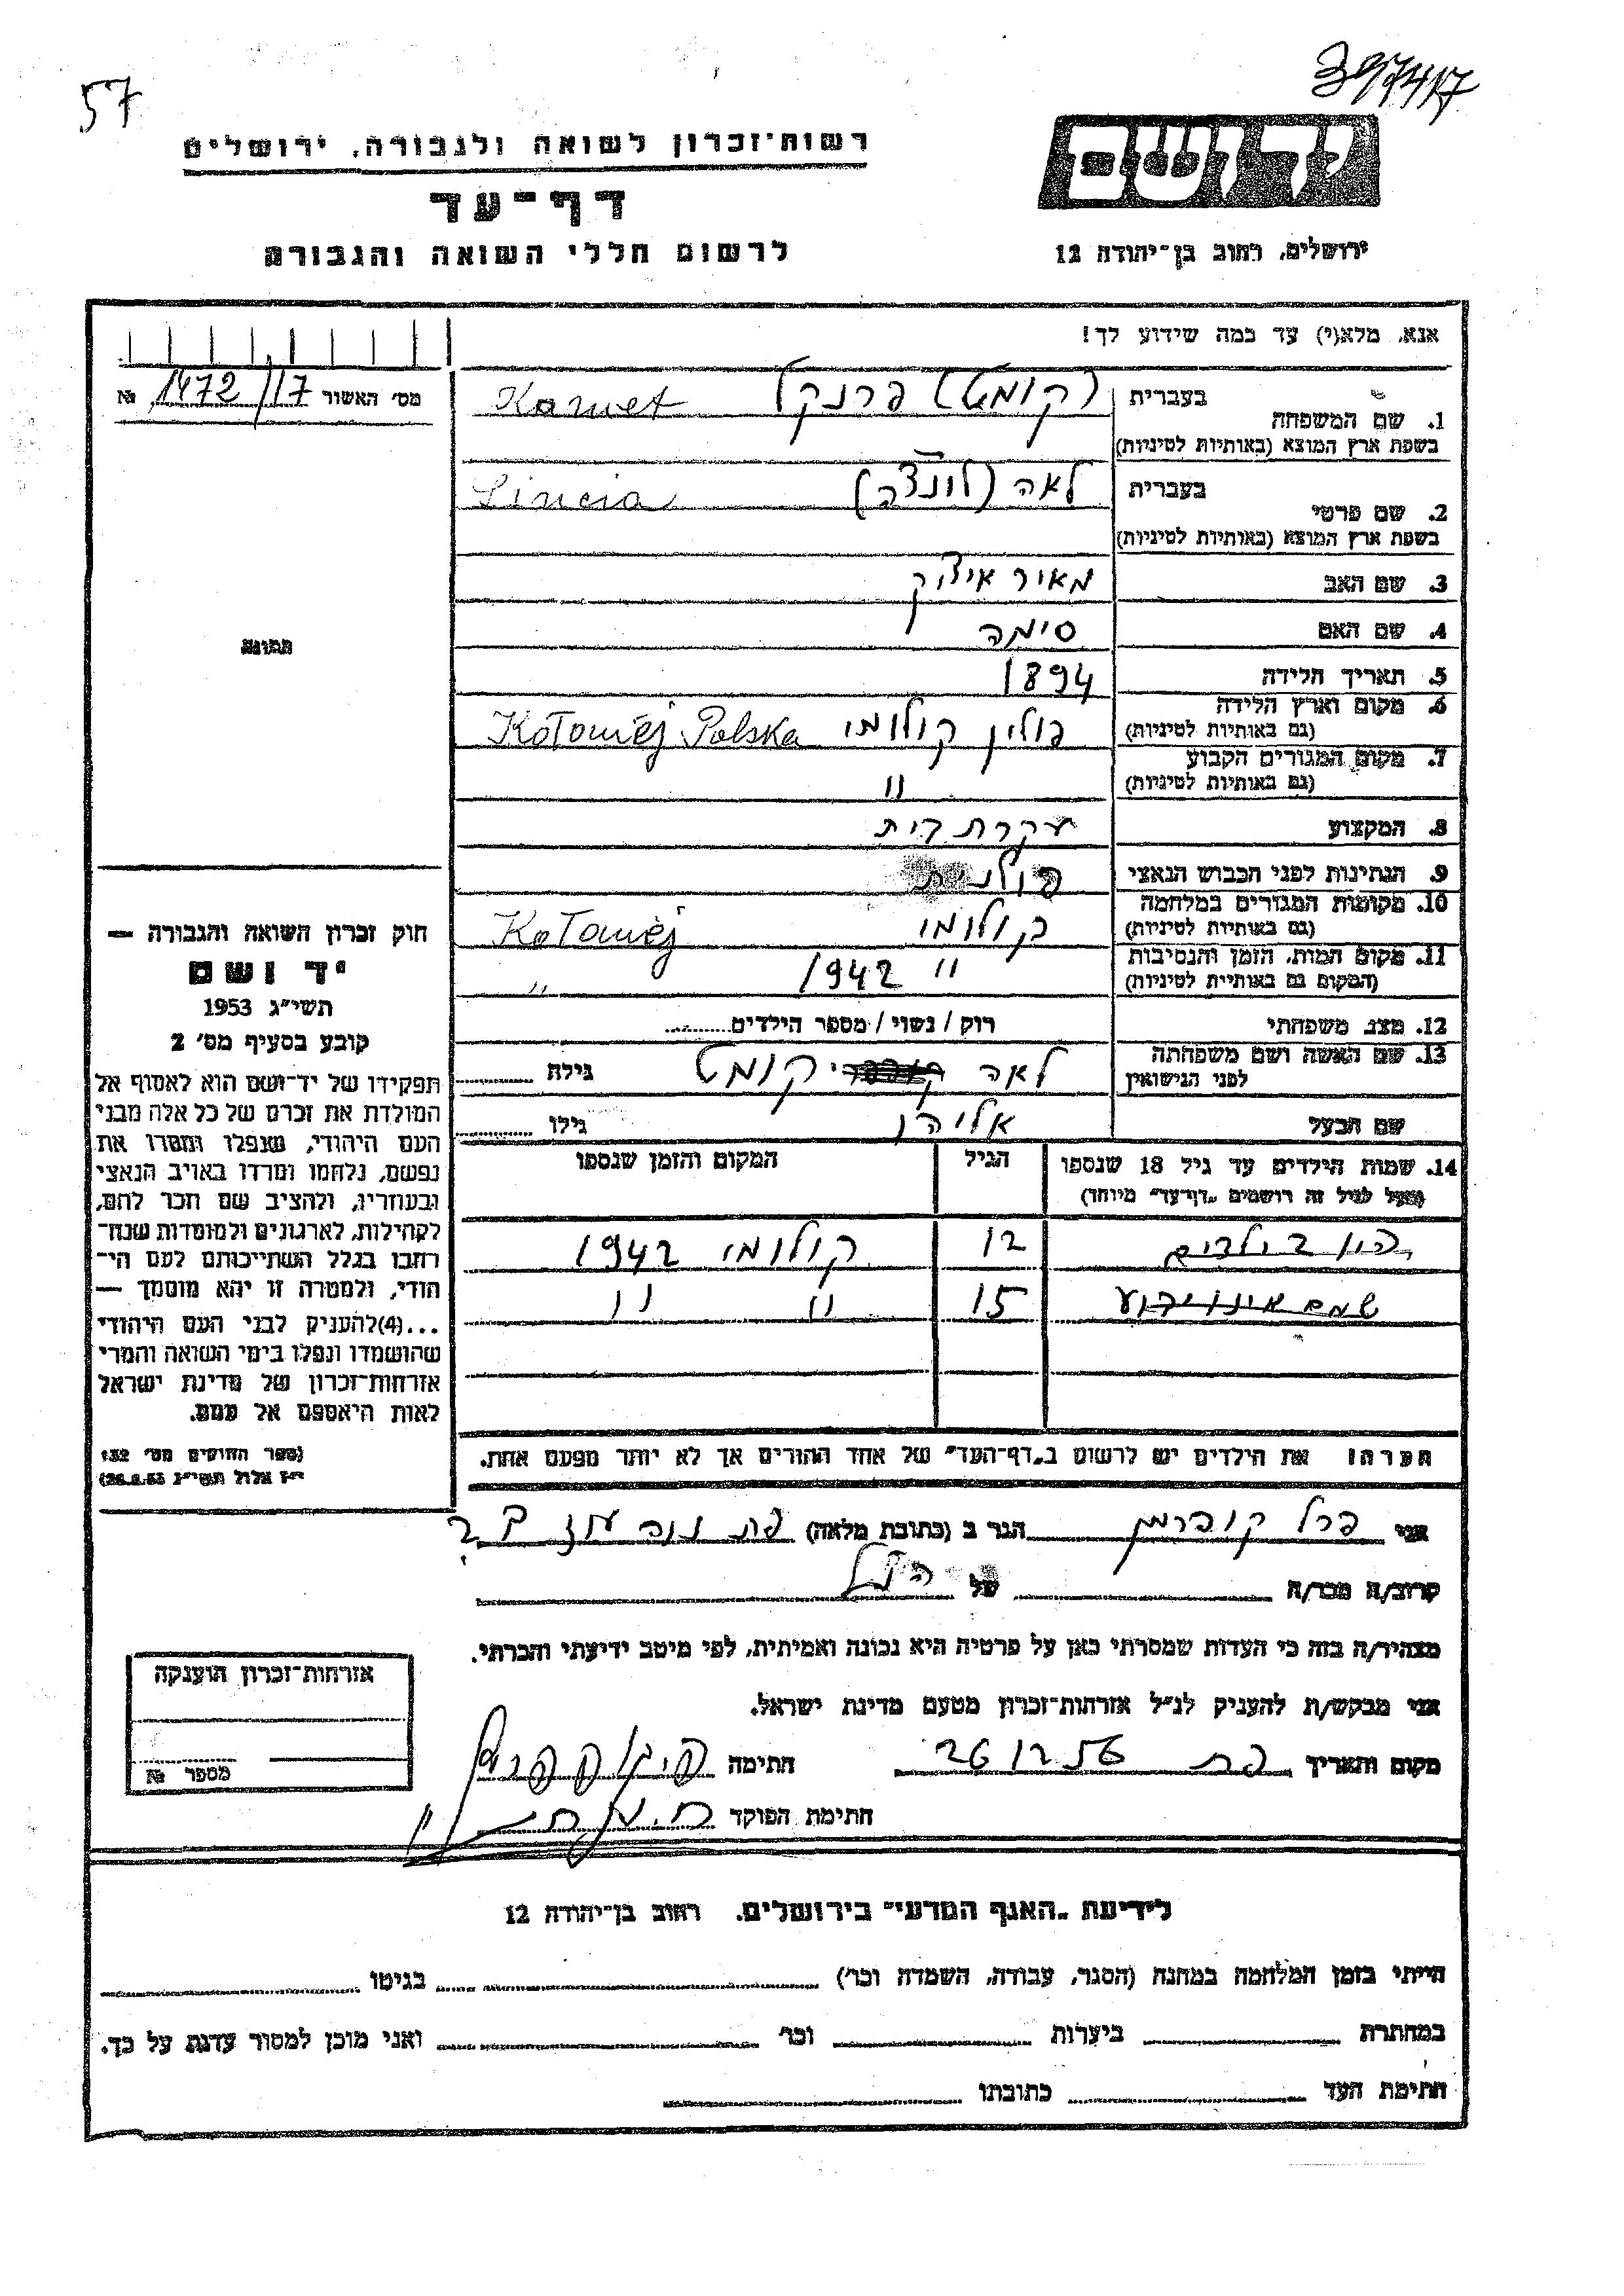 57
397417
רשות־זכרון לשואה ולגבורה, ירושלים
דף־עד
לרשום חללי השואה והגבורה
יד ושם
ירושלים, רחוב בן־יהודה 12
אנא, מלא(י) עד כמה שידוע לך!
מס׳ האשור 1472/17 №
1. שם המשפחה
בעברית (קומט) פרנקל Kamet
בשפת ארץ המוצא (באותיות לטיניות)
2. שם פרטי
בעברית לאה (לונצה) Lincia
בשפת ארץ המוצא (באותיות לטיניות)
3. שם האב מאיר איציק
4. שם האם סימה
5. תאריך הלידה 1894
6. מקום וארץ הלידה פולין קולומי Kołomej Polska
(גם באותיות לטיניות)
7. מקום המגורים הקבוע "
(גם באותיות לטיניות)
8. המקצוע עקרת בית
9. הנתינות לפני הכבוש הנאצי פולנית
10. מקומות המגורים במלחמה קולומי Kołomej
(גם באותיות לטיניות)
11. מקום המות, הזמן והנסיבות " 1942 "
(המקום גם באותיות לטיניות)
12. מצב משפחתי רוק / נשוי / מספר הילדים
13. שם האשה ושם משפחתה לאה קומט גילה
לפני הנישואין
שם הבעל אליהו גילו
14. שמות הילדים עד גיל 18 שנספו הגיל המקום והזמן שנספו
(מעל לגיל זה רושמים „דף־עד" מיוחד)
הילדים 12 קולומי 1942
שמם אינו ידוע 15 " "
הערה: את הילדים יש לרשום ב„דף־העד" של אחד ההורים אך לא יותר מפעם אחת.
תמונה
חוק זכרון השואה והגבורה —
יד ושם
תשי״ג 1953
קובע בסעיף מס׳ 2
תפקידו של יד־ושם הוא לאסוף אל
המולדת את זכרם של כל אלה מבני
העם היהודי, שנפלו ומסרו את
נפשם, נלחמו ומרדו באויב הנאצי
ובעוזריו, ולהציב שם וזכר להם,
לקהילות, לארגונים ולמוסדות שנח־
רבו בגלל השתייכותם לעם הי־
הודי, ולמטרה זו יהא מוסמך —
...(4)להעניק לבני העם היהודי
שהושמדו ונפלו בימי השואה והמרי
אזרחות־זכרון של מדינת ישראל
לאות היאספם אל עמם.
(ספר החוקים מס׳ 132
י״ז אלול תשי״ג 28.8.53)
אני פרל קופרמן הגר ב (כתובת מלאה)
קרוב/ה מכר/ה של הנ״ל
מצהיר/ה בזה כי העדות שמסרתי כאן על פרטיה היא נכונה ואמיתית, לפי מיטב ידיעתי והכרתי.
אני מבקש/ת להעניק לנ״ל אזרחות־זכרון מטעם מדינת ישראל.
מקום ותאריך 26 12 56 חתימה
חתימת הפוקד
אזרחות־זכרון הוענקה
מספר №
לידיעת „האגף המדעי" בירושלים, רחוב בן־יהודה 12
הייתי בזמן המלחמה במחנה (הסגר, עבודה, השמדה וכו׳) בגיטו
במחתרת ביערות וכו׳ ואני מוכן למסור עדות על כך.
חתימת העד כתובתו